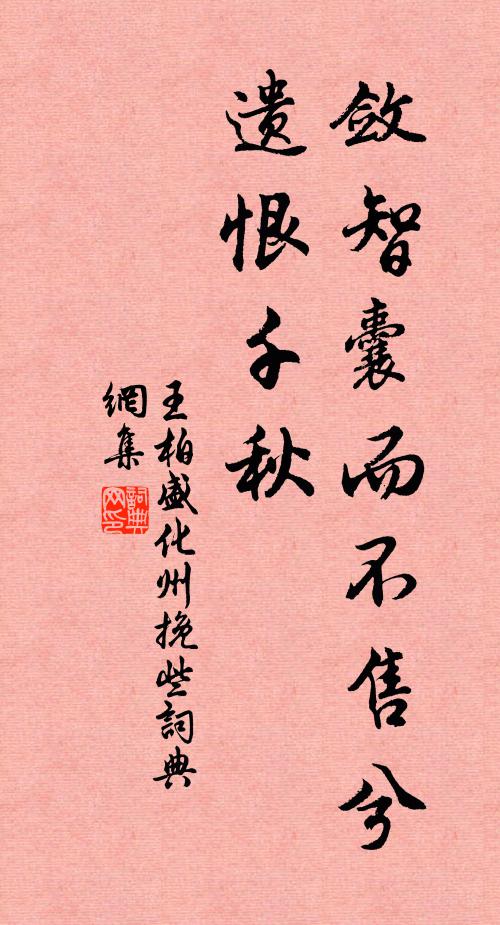 斂智囊而不售兮
遺恨千秋
王柏盛化州挽些詞典
網集
詞典
网印